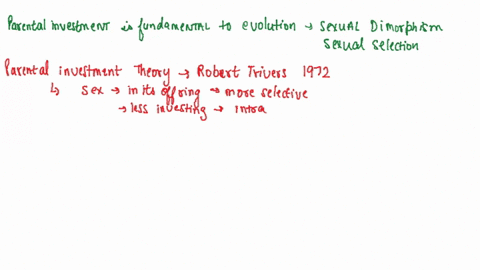 Parental investment is fundamental to evolution → Sexual Dimorphism
Sexual Selection
Parental investment Theory → Robert Trivers 1972
↳ Sex → in its offring → more selective
→ less investing → intra